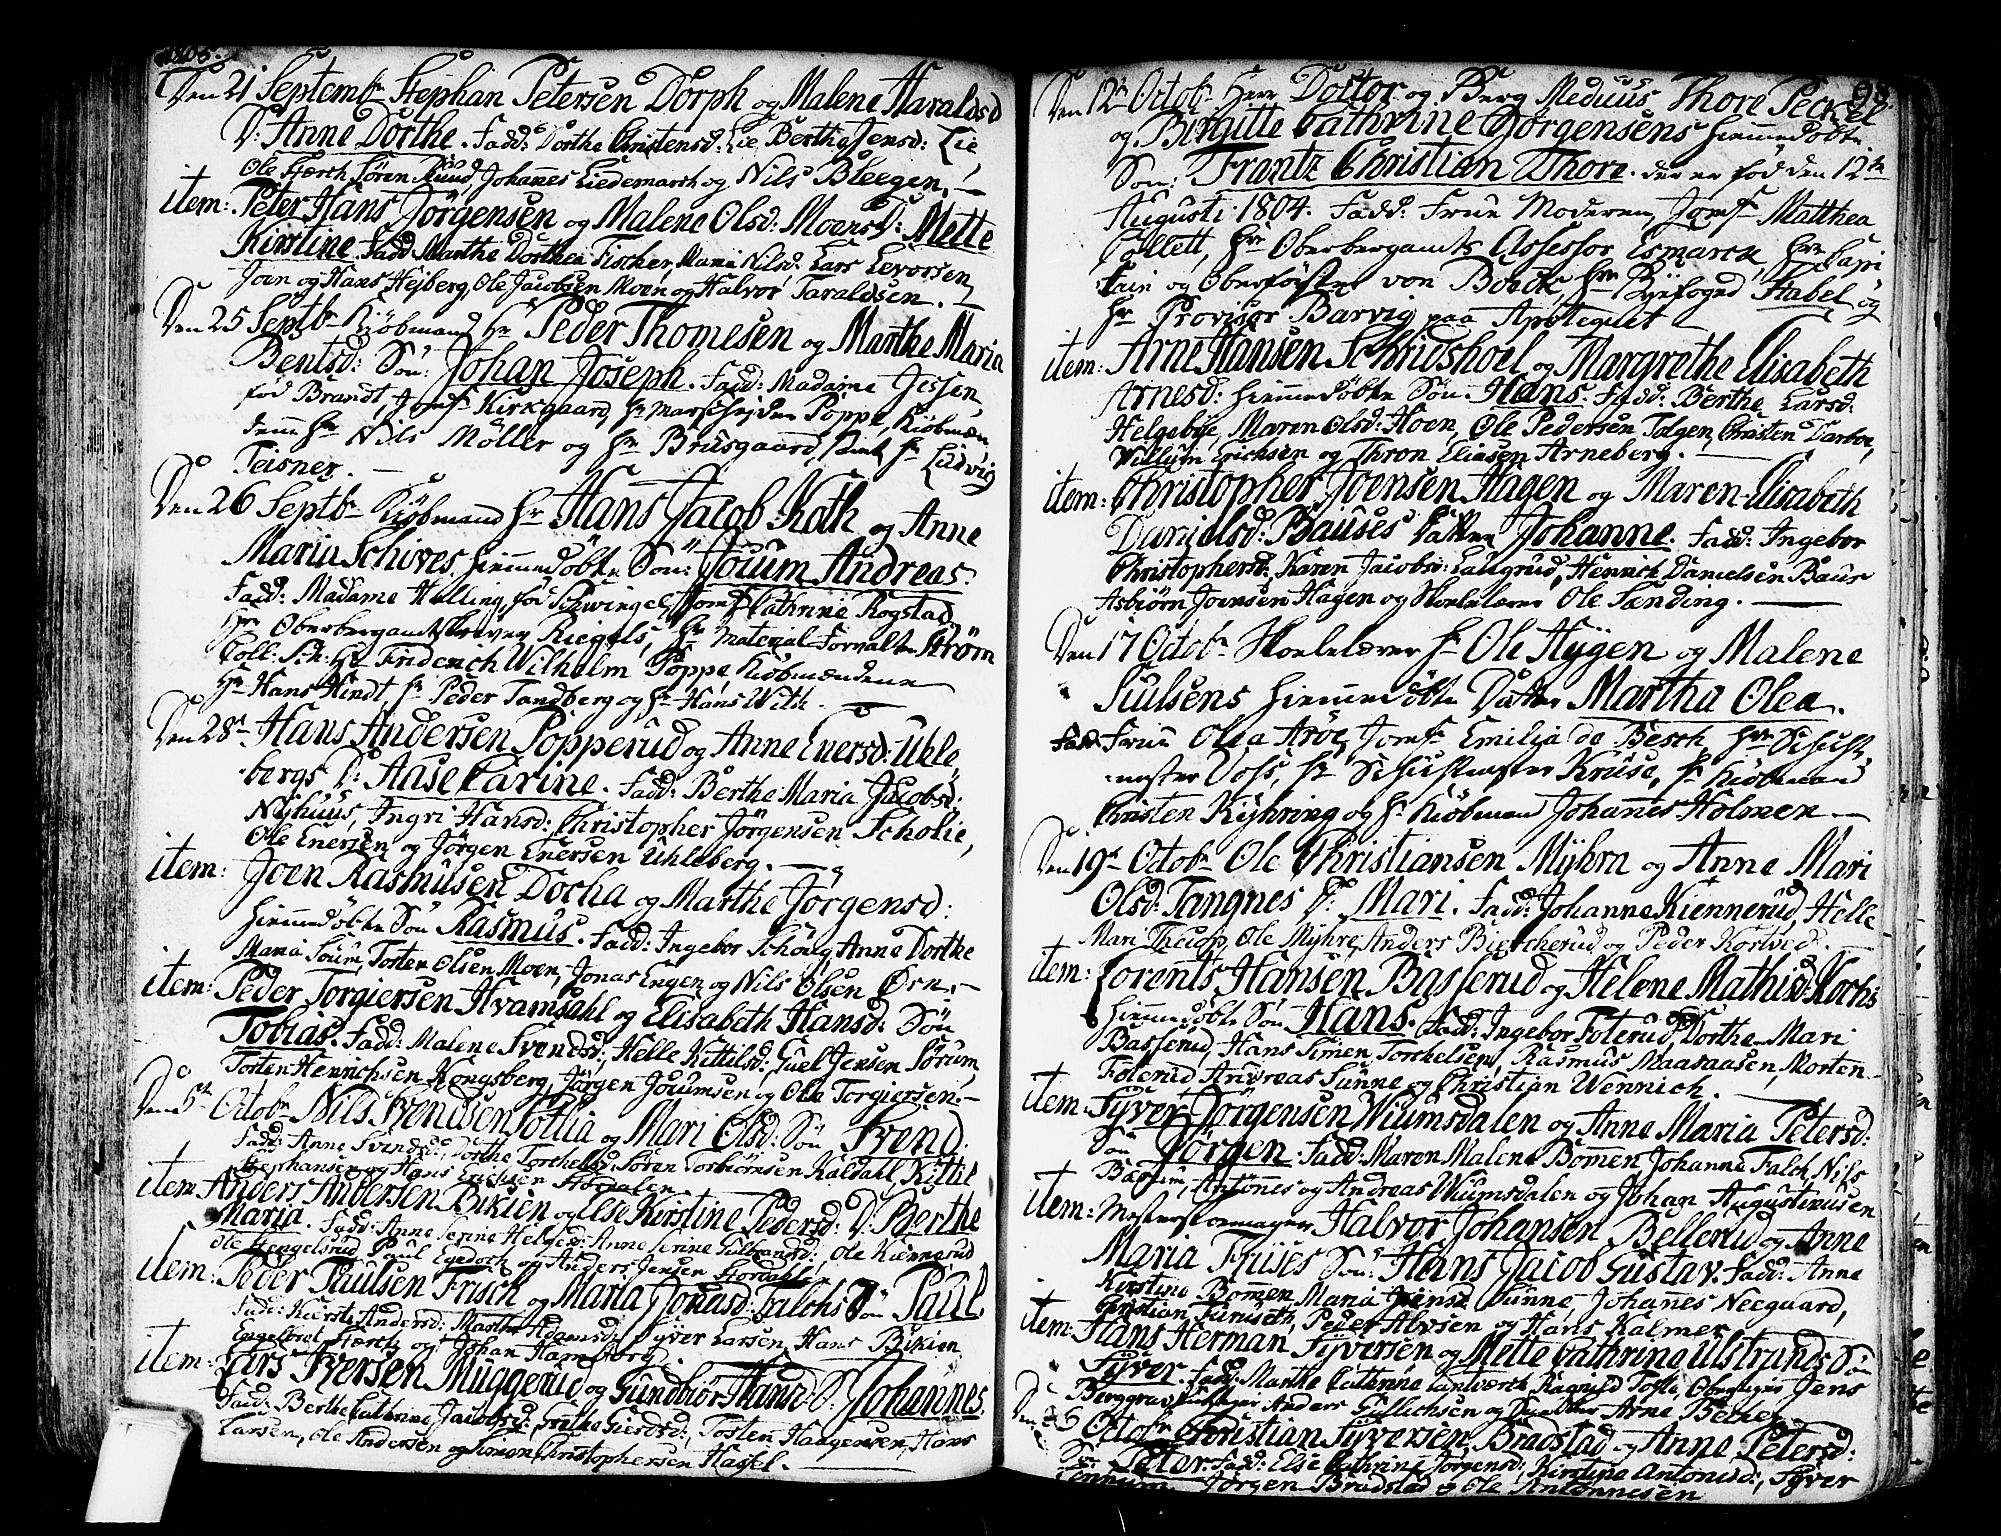 1805.
Den 21 Septembr Stephan Petersen Dorph og Malene Haraldsd
D: Anne Dorthe. Fadd: Dorthe Christensd: Lie Berthe Jensd: Lie
Ole Hæsch Søren Johanes Liedemarch og Nils Bleegen.
item: Peter Hans Jörgensen og Malene Olsd: Moens D: Mette
Kirstine. Fadd Marthe Dorthea Fischer, Maria Nilsd: Lars Levorsen
Joen og Hans Hejberg, Ole Jacobsen Moen og Halvor Taraldsen.
Den 25 Septbr Kiöbmand Hr Peder Thomesen og Marthe Maria
Bentsd: Sön: Johan Joseph. Fadd: Madame Jessen
föd Brandt, Jomfr Kirkgaard, Hr Marschejder Poppe, Kiöbmæn
dene Hr Nils Möller og Hr Bruusgaard, Hr Ludvig
Teisner.
Den 26 Septbr Kiöbmand Hr Hans Jacob Koth og Anne
Maria Schives hiemmedöbte Sön: Jouum Andreas.
Fadd: Madame Helling föd Schwingel, Jomf Cathrine Rogstad
Hr Oberbergamtskriver Riegels, Hr Material Forvalter Strøm
Coll: Hr Friderich Wilhelm Poppe Kiöbmændene
Hr Hans Hindt Hr Peder Tandberg og Hr Hans With.
Den 28 Hans Andersen Popperud og Anne Enersd: Uhle
bergs D: Aase Carine. Fadd: Berthe Maria Jacobsd:
Nyhuus, Ingri Hansd: Christopher Jörgensen Scholie,
Ole Enersen og Jörgen Enersen Uhleberg.
item: Joen Rasmusen Docha og Marthe Jörgensd:
hiemmedöbte Sön Rasmus. Fadd: Ingebor Anne Dorthe
Maria Sørum, Torsten Olsen Moen, Jonas Engen og Nils Olsen Örn.
item: Peder Torgiersen Hvamsahl og Elisabeth Hansd: Sön
Tobias. Fadd: Malene Svendsd:, Helle Kittilsd:, Juel Jensen Sörum,
Torsten Henrichsen Kongsberg, Jörgen Jouumsen og Ole Torgiersen.
Den 5te Octobr Nils Svendsen Follia og Mari Olsd: Sön Svend.
Fadd: Anne Svendsd, Dorthe Torchelsd, Sören Torbiörnsen Kaldahl, Kittil
Stephansen og Hans Erichsen Stordalen
item Anders Andersen Bikien og Else Kirstine Pedersd: D: Berthe
Maria. Fadd: Anne Serine Helgesd: Anne Serine Gulbrandsd:, Ole Kiennerud
Ole Hengelsrud Paul Egedorf og Anders Jensen Stordahlen
item: Peder Paulsen Frisch og Maria Jonasd: Falchs Sön Paul.
Fadd: Kiersti Andersd: Marthe Adamsd: Syver Larsen, Hans Bikien
Engebret Hærch og Johan Hamborg.
item: Lars Iversen Muggerud og Gundbiör Hansd: S: Johannes.
Fadd: Berthe Cathrine Jacobsd:, Grethe Gierdsd:, Torsten Haagensen, Hans
Larsen, Ole Andersen og Simon Christophersen Hassel.
98.
Den 12te Octobr Herr Doctor og Berg Medicus Thore Peckel
og Birgitte Cathrine Jörgensens hiemmedöbte
Sön: Frantz Christian Thore. der er föd den 12te
Augusti 1804. Fadd: Frue Moderen, Jomfr Matthea
Collett, Hr Oberbergamts Assessor Esmarck, Hr Capi
tain og Oberförster von Hr Byefoged Stabel, og
Hr Provisor Barvig paa Apotequet
item: Arne Hansen Schridshoel og Margrethe Elisabeth
Arnesd: hiemmedöbte Sön Hans. Fadd: Berthe Larsd:
Helgebye, Maren Olsd: Hoen, Ole Pedersen Tolgen, Christen Darboe,
Willum Erichsen og Thron Eliasen Arneberg.
item: Christopher Joensen Hagen og Maren Elisabeth
Danjelsd: Bauses Datter Johanne. Fadd: Ingebor
Christophersd:, Karen Jacobsd: Laugrud, Henrich Danielsen Baus
Asbiörn Joensen Hagen og Skolelærer Ole Sænding.
Den 17 Octobr Skolelærer Hr Ole Hÿgen og Malene
Siulsens hiemmedöbte Datter Martha Olea.
Fadd: Frue Olea Aröe, Jomfr Emilia de Besch, Hr Schicht
mester Voss, Hr Schichtmester Kruse, Hr Kiöbmand
Christen Kyhring og Hr Kiöbmand Johannes Holmen
Den 19 Octobr Ole Christiansen Mÿhra og Anne Mari
Olsd: Tangnes D: Mari. Fadd: Johanne Kiennerud, Helle
Mari Ole Myhre, Anders Biercherud og Peder Kortved.
item: Lorents Hansen Basserud og Helene Mathisd: Kochs
hiemmedöbte Sön Hans. Fadd: Ingebor Foterud, Dorthe Mari
Basserud, Hans Simen Torchelsen, Rasmus Maasaasen, Morten
Foterud Andreas Sunne og Christian Wennich.
item: Syver Jörgensen Wiumsdalen og Anne Maria Petersd:
Sön Jörgen. Fadd: Maren Malene Bomen, Johanne Falch, Nils
Bærum, Antönnes og Andreas Wiumsdalen og Johan Augustinusen
item: Halvor Johansen Bellerud og Anne
Maria Friises Sön: Hans Jacob Gustav. Fadd: Anne
Kirstine Bomen Maria Jensd Sunne, Johannes Neegaard,
Christian Funiseth, Peder Alvsen og Hans Kalmer
item: Hans Herman Syversen og Mette Cathrine Ulstrands Sön
Syver. Fadd: Marthe Cathrine Lantværck Ragnild Tofte, Oberstiger Jens
Berggrav, Anders Gullichsen og Arne Becher
Den 26 Octobr Christian Syversen Bradstad og Anne Petersd:
Sön Peter. Fadd: Else Cathrine Jörgensd:, Kirstine Antonisd:, Syver
Jörgen Bradstad og Ole Antonnesen